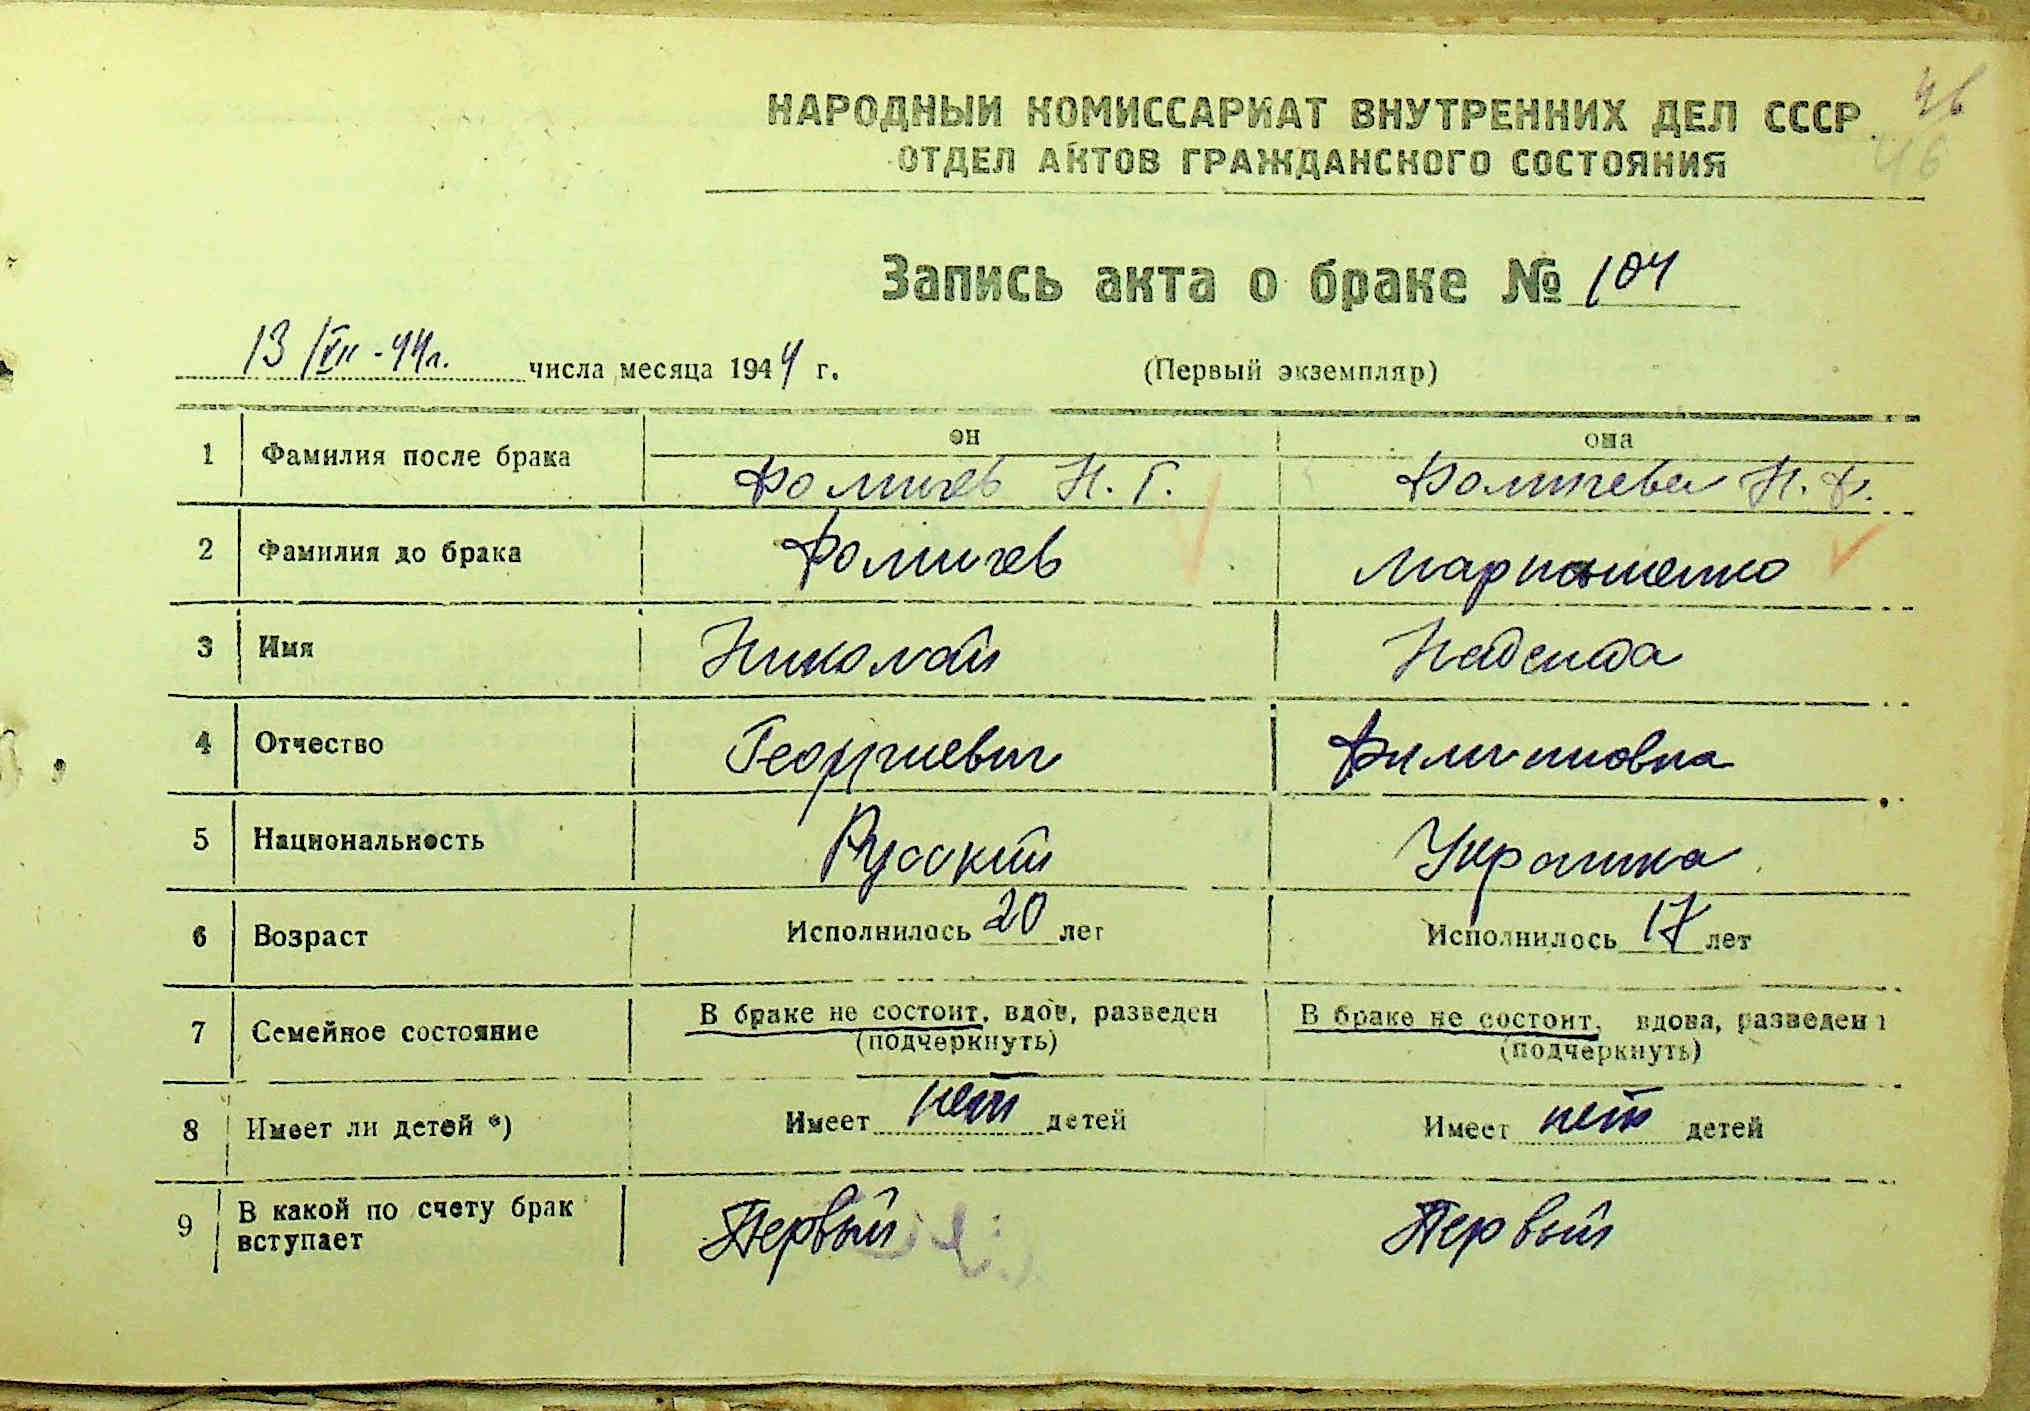 46
НАРОДНЫЙ КОМИССАРИАТ ВНУТРЕННИХ ДЕЛ СССР
46
ОТДЕЛ АКТОВ ГРАЖДАНСКОГО СОСТОЯНИЯ
Запись акта о браке № 104
13/VII-44г. числа месяца 1944 г. (Первый экземпляр)
он она
1 Фамилия после брака Фомичев Н. Г. Фомичева Н. Ф.
2 Фамилия до брака Фомичев
3 Имя Николай Надежда
4 Отчество Георгиевич Филиповна
5 Национальность Русский Украинка
6 Возраст Исполнилось 20 лет Исполнилось 17 лет
7 Семейное состояние В браке не состоит, вдов, разведен В браке не состоит, вдова, разведена
(подчеркнуть) (подчеркнуть)
8 Имеет ли детей *) Имеет нет детей Имеет нет детей
9 В какой по счету брак вступает Первый Первый